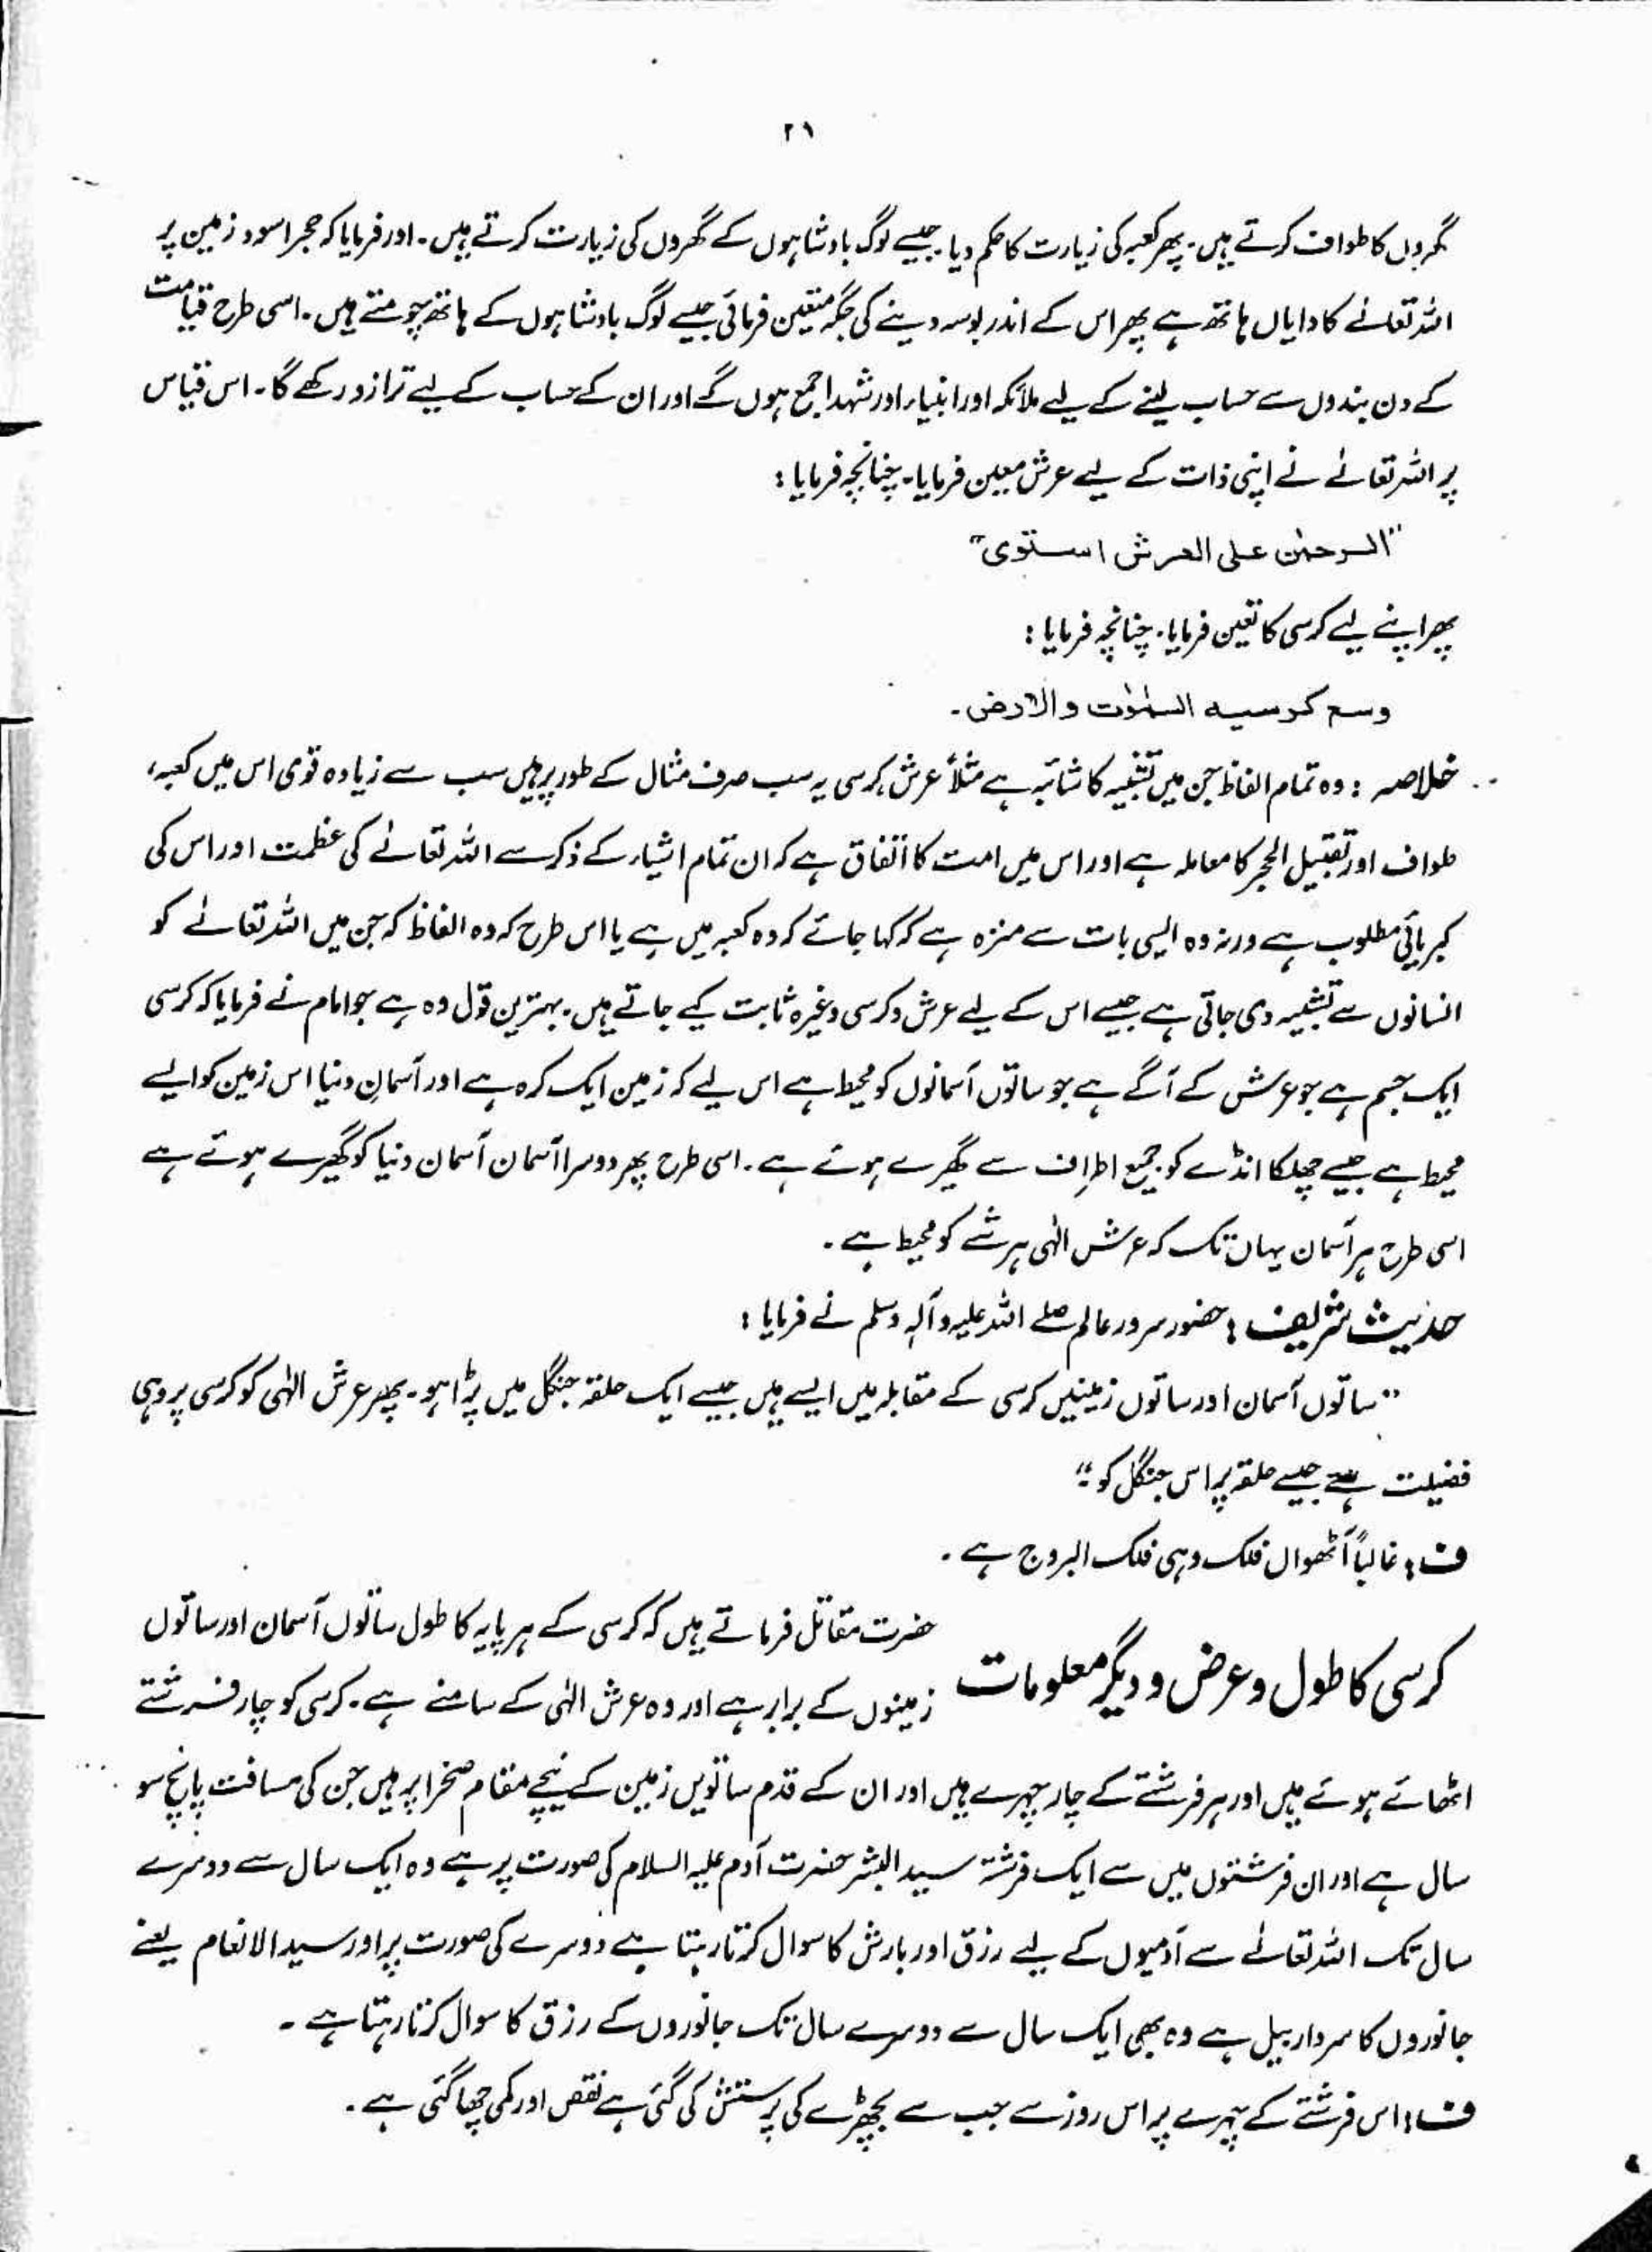 ۲۱
گھروں کا طواف کرتے ہیں۔ پھر کعبہ کی زیارت کا حکم دیا جیسے لوگ بادشاہوں کے گھروں کی زیارت کرتے ہیں۔ اور فرمایا کہ حجر اسود زمین پر
اللہ تعالےٰ کا دایاں ہاتھ ہے پھر اس کے اندر بوسہ دینے کی جگہ متعین فرمائی جیسے لوگ بادشاہوں کے ہاتھ چومتے ہیں۔ اسی طرح قیامت
کے دن بندوں سے حساب لینے کے لیے ملائکہ اور انبیاء اور شہدا جمع ہوں گے اور ان کے حساب کے لیے ترازو رکھے گا۔ اس قیاس
پر اللہ تعالےٰ نے اپنی ذات کے لیے عرش معین فرمایا۔ چنانچہ فرمایا :
"الرحمٰن علی العرش استوی"
پھر اپنے لیے کرسی کا تعین فرمایا۔ چنانچہ فرمایا :
وسع کرسیہ السمٰوٰت والارض۔
خلاصہ : وہ تمام الفاظ جن میں تشبیہ کا شائبہ ہے مثلاً عرش، کرسی یہ سب صرف مثال کے طور پر ہیں سب سے زیادہ قوی اس میں کعبہ،
طواف اور تقبیل الحجر کا معاملہ ہے اور اس میں امت کا اتفاق ہے کہ ان تمام اشیاء کے ذکر سے اللہ تعالےٰ کی عظمت اور اس کی
کبریائی مطلوب ہے ورنہ وہ ایسی بات سے منزہ ہے کہ کہا جائے کہ وہ کعبہ میں ہے یا اس طرح کہ وہ الفاظ کہ جن میں اللہ تعالےٰ کو
انسانوں سے تشبیہ دی جاتی ہے جیسے اس کے لیے عرش و کرسی وغیرہ ثابت کیے جاتے ہیں۔ بہترین قول وہ ہے جو امام نے فرمایا کہ کرسی
ایک جسم ہے جو عرش کے آگے ہے جو ساتوں آسمانوں کو محیط ہے اس لیے کہ زمین ایک کرہ ہے اور آسمانِ دنیا اس زمین کو ایسے
محیط ہے جیسے چھلکا انڈے کو جمیع اطراف سے گھیرے ہوئے ہے۔ اسی طرح پھر دوسرا آسمان آسمان دنیا کو گھیرے ہوئے ہے
اسی طرح ہر آسمان یہاں تک کہ عرش الٰہی ہر شے کو محیط ہے۔
حدیث شریف : حضور سرور عالم صلے اللہ علیہ وآلہ وسلم نے فرمایا :
"ساتوں آسمان اور ساتوں زمینیں کرسی کے مقابلہ میں ایسے ہیں جیسے ایک حلقہ جنگل میں پڑا ہو۔ پھر عرش الٰہی کو کرسی پر وہی
فضیلت ہے جیسے حلقہ پر اس جنگل کو"
ف : غالباً آٹھواں فلک وہی فلک البروج ہے۔
کرسی کا طول و عرض و دیگر معلومات
حضرت مقاتل فرماتے ہیں کہ کرسی کے ہر پایہ کا طول ساتوں آسمان اور ساتوں
زمینوں کے برابر ہے اور وہ عرش الٰہی کے سامنے ہے۔ کرسی کو چار فرشتے
اٹھائے ہوئے ہیں اور ہر فرشتے کے چار چہرے ہیں اور ان کے قدم ساتویں زمین کے نیچے مقام صخرا پر ہیں جن کی مسافت پانچ سو
سال ہے اور ان فرشتوں میں سے ایک فرشتہ سید البشر حضرت آدم علیہ السلام کی صورت پر ہے وہ ایک سال سے دوسرے
سال تک اللہ تعالےٰ سے آدمیوں کے لیے رزق اور بارش کا سوال کرتا رہتا ہے دوسرے کی صورت پر اور سید الانعام یعنے
جانوروں کا سردار بیل ہے وہ بھی ایک سال سے دوسرے سال تک جانوروں کے رزق کا سوال کرتا رہتا ہے۔
ف : اس فرشتے کے چہرے پر اس روز سے جب سے بچھڑے کی پرستش کی گئی ہے نقص اور کمی چھا گئی ہے۔